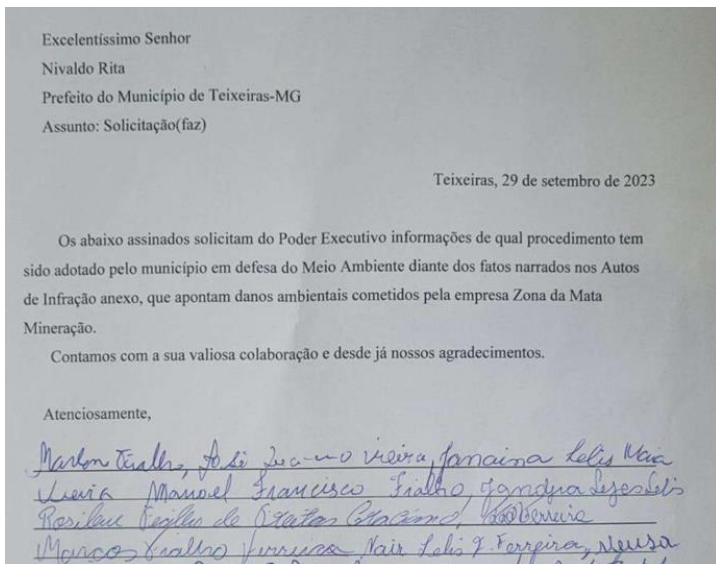 Excelentíssimo Senhor
Nivaldo Rita
Prefeito do Município de Teixeiras-MG
Assunto: Solicitação(faz)
Teixeiras, 29 de setembro de 2023
Os abaixo assinados solicitam do Poder Executivo informações de qual procedimento tem
sido adotado pelo município em defesa do Meio Ambiente diante dos fatos narrados nos Autos
de Infração anexo, que apontam danos ambientais cometidos pela empresa Zona da Mata
Mineração.
Contamos com a sua valiosa colaboração e desde já nossos agradecimentos.
Atenciosamente,
Marlon Fialho, José vieira, Janaina Lelis Maia
Vieira Manoel Francisco Fialho, Lelis
de Freitas
Marcos Fialho Ferreira Nair Lelis F. Ferreira, Neusa